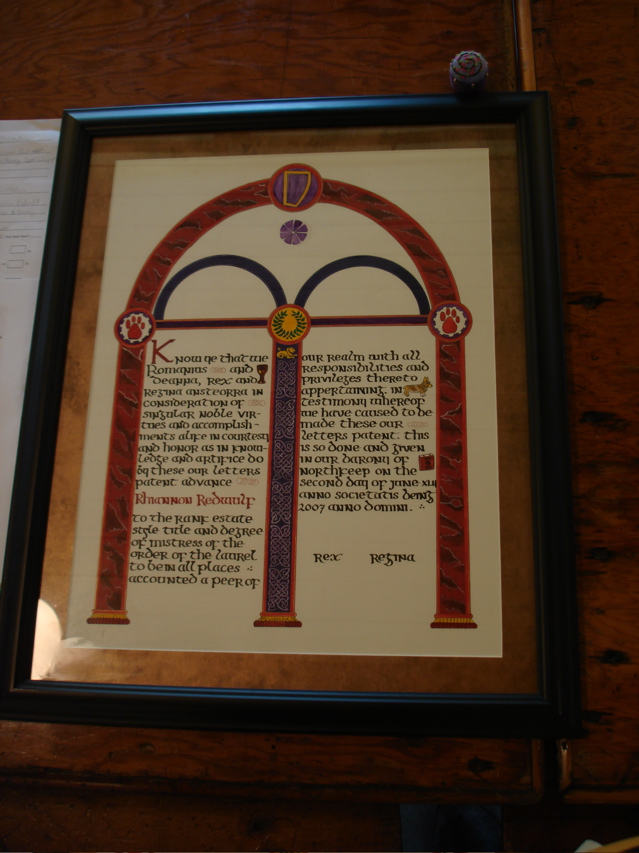 Know ye that we
Romanius and
Deanna, Rex and
Regina Ansteorra in
consideration of
singular noble vir-
tues and accomplish-
ments alike in courtesy
and honor as in know-
ledge and artifice do
by these our letters
patent advance
Rhiannon Redwulf
to the rank estate
style title and degree
of mistress of the
order of the laurel
to be in all places
accounted a peer of
our realm with all
responsibilities and
privileges thereto
appertaining. In
testimony whereof
we have caused to be
made these our
letters patent. This
is so done and given
in our barony of
Northkeep on the
second day of June XLII
anno societatis being
2007 anno domini.
Rex Regina